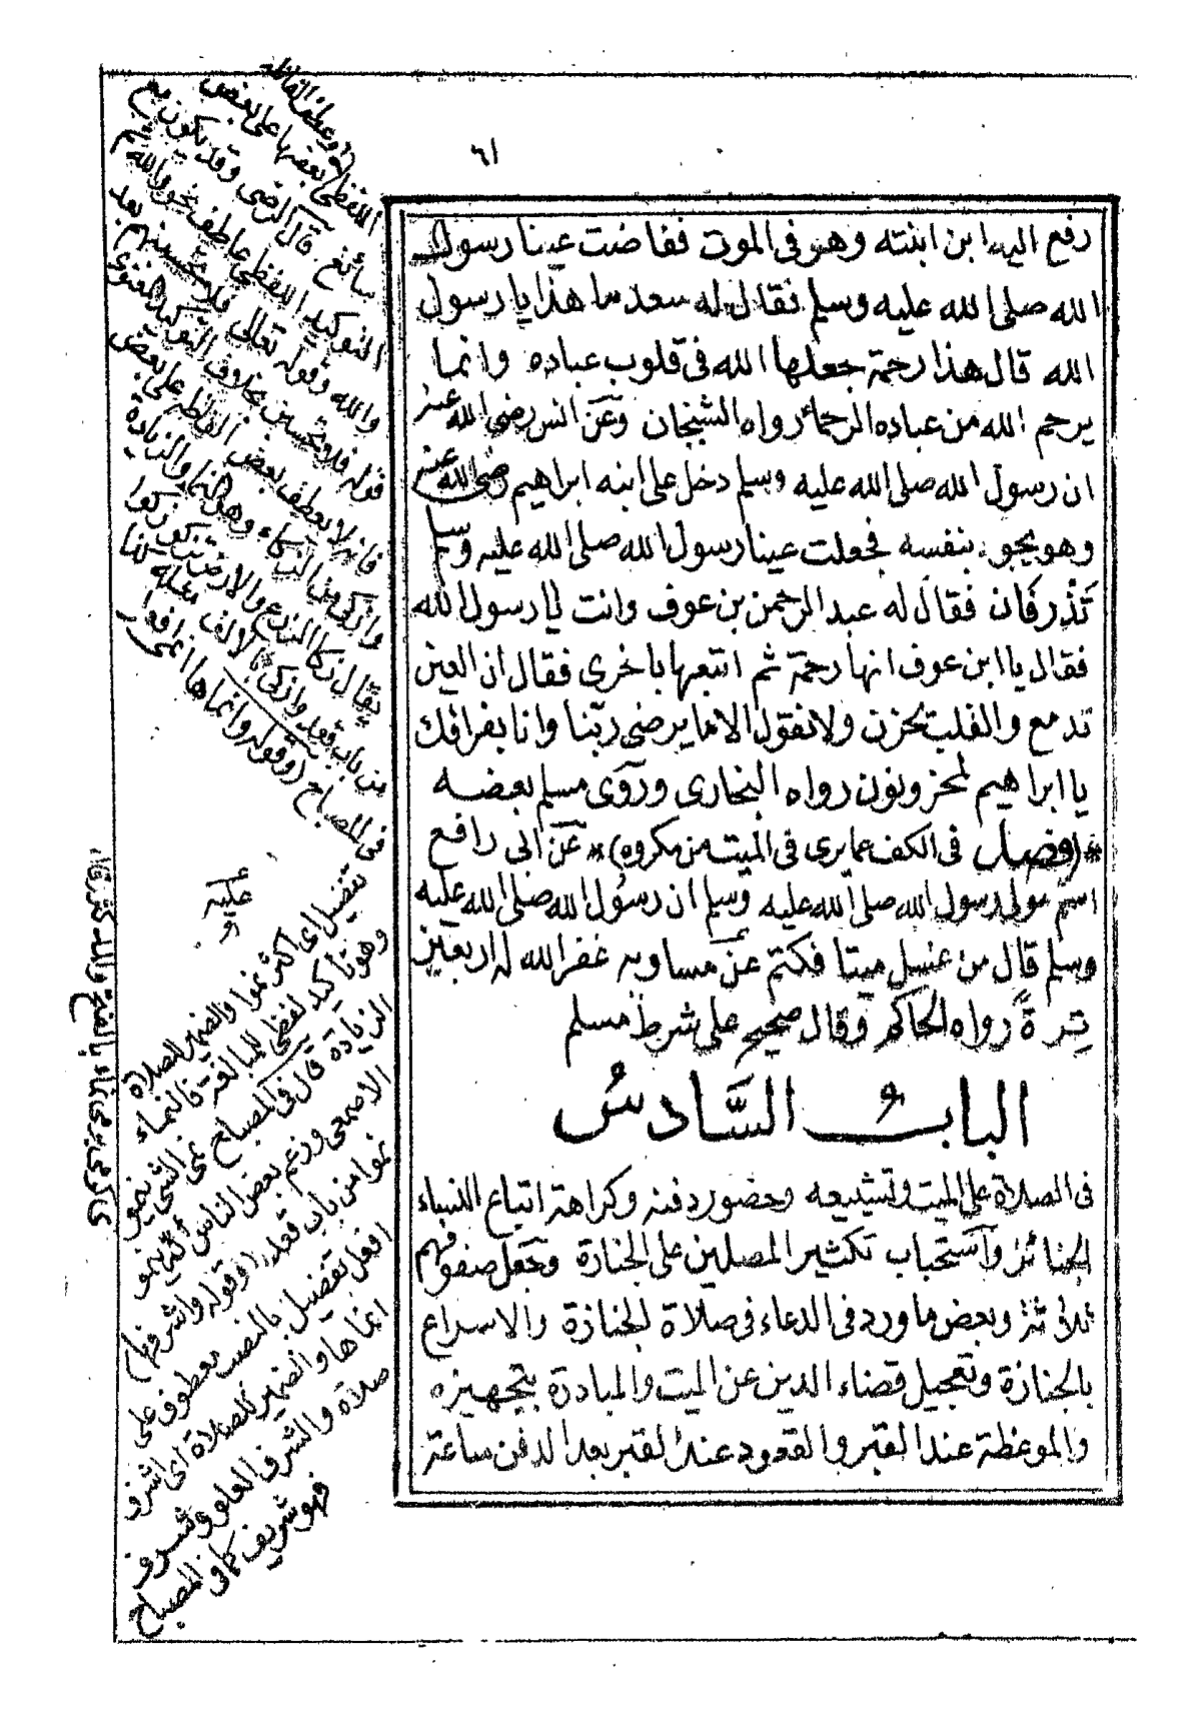 ٦١
رفع اليه ابن ابنته وهو فى الموت ففاضت عينا رسول
الله صلى الله عليه وسلم فقال له سعد ما هذا يا رسول
الله قال هذا رحمة جعلها الله فى قلوب عباده وانما
يرحم الله من عباده الرحماء رواه الشيخان وعن انس رضى الله عنه
ان رسول الله صلى الله عليه وسلم دخل على ابنه ابراهيم رضى الله عنه
وهو يجود بنفسه فجعلت عينا رسول الله صلى الله عليه وسلم
تَذْرِفَان فقال له عبد الرحمن بن عوف وانت يا رسول الله
فقال يا ابن عوف انها رحمة ثم اتبعها باخرى فقال ان العين
تدمع والقلب يحزن ولا نقول الا ما يرضى ربنا وانا بفراقك
يا ابراهيم لمحزونون رواه البخارى وروى مسلم بعضه
*(فصل فى الكف عما يرى فى الميت من مكروه)* عن ابى رافع
اسلم مولى رسول الله صلى الله عليه وسلم ان رسول الله صلى الله عليه
وسلم قال من غسل ميتا فكتم عن مساويه غفر الله له اربعين
مرة رواه الحاكم وقال صحيح على شرط مسلم
الباب السَّادسُ
فى الصلاة على الميت وتشييعه وحضور دفنه وكراهة اتباع النساء
الجنائز واستحباب تكثير المصلين على الجنازة وجعل صفوفهم
ثلاثة وبعض ما ورد فى الدعاء فى صلاة الجنازة والاسراع
بالجنازة وتعجيل قضاء الدين عن الميت والمبادرة بتجهيزه
والموعظة عند القبر والقعود عند القبر بعد الدفن ساعة
اللفظى بعضها على بعض
سائغ قال الرضى وقد يكون مع
التوكيد اللفظى عاطف نحو والله ثم
والله وقوله تعالى فلا تحسبنهم بعد
قوله فلا تحسبن بخلاف التوكيد المعنوى
فانه لا يعطف بعض الفاظه على بعض
وازكى من الزكاء وهو النماء والزيادة
يقال زكا الزرع والارض تزكو زكوا
من باب قعد وازكى بالالف مثله كذا
فى المصباح (وقوله وانماها)
تفضيل اى اكثر نموا والضمير للصلاة
وهو تأكيد لفظى للمبالغة فالنماء
الزيادة قال فى المصباح نمى الشئ ينمو
الاصمعى وزعم بعض الناس
نموا من باب قعد (وقوله واشرفها)
افعل تفضيل بالنصب معطوف على
انماها والضمير للصلاة اى اشرف
صلاة والشرف العلو وشرف
فهو شريف كما فى المصباح